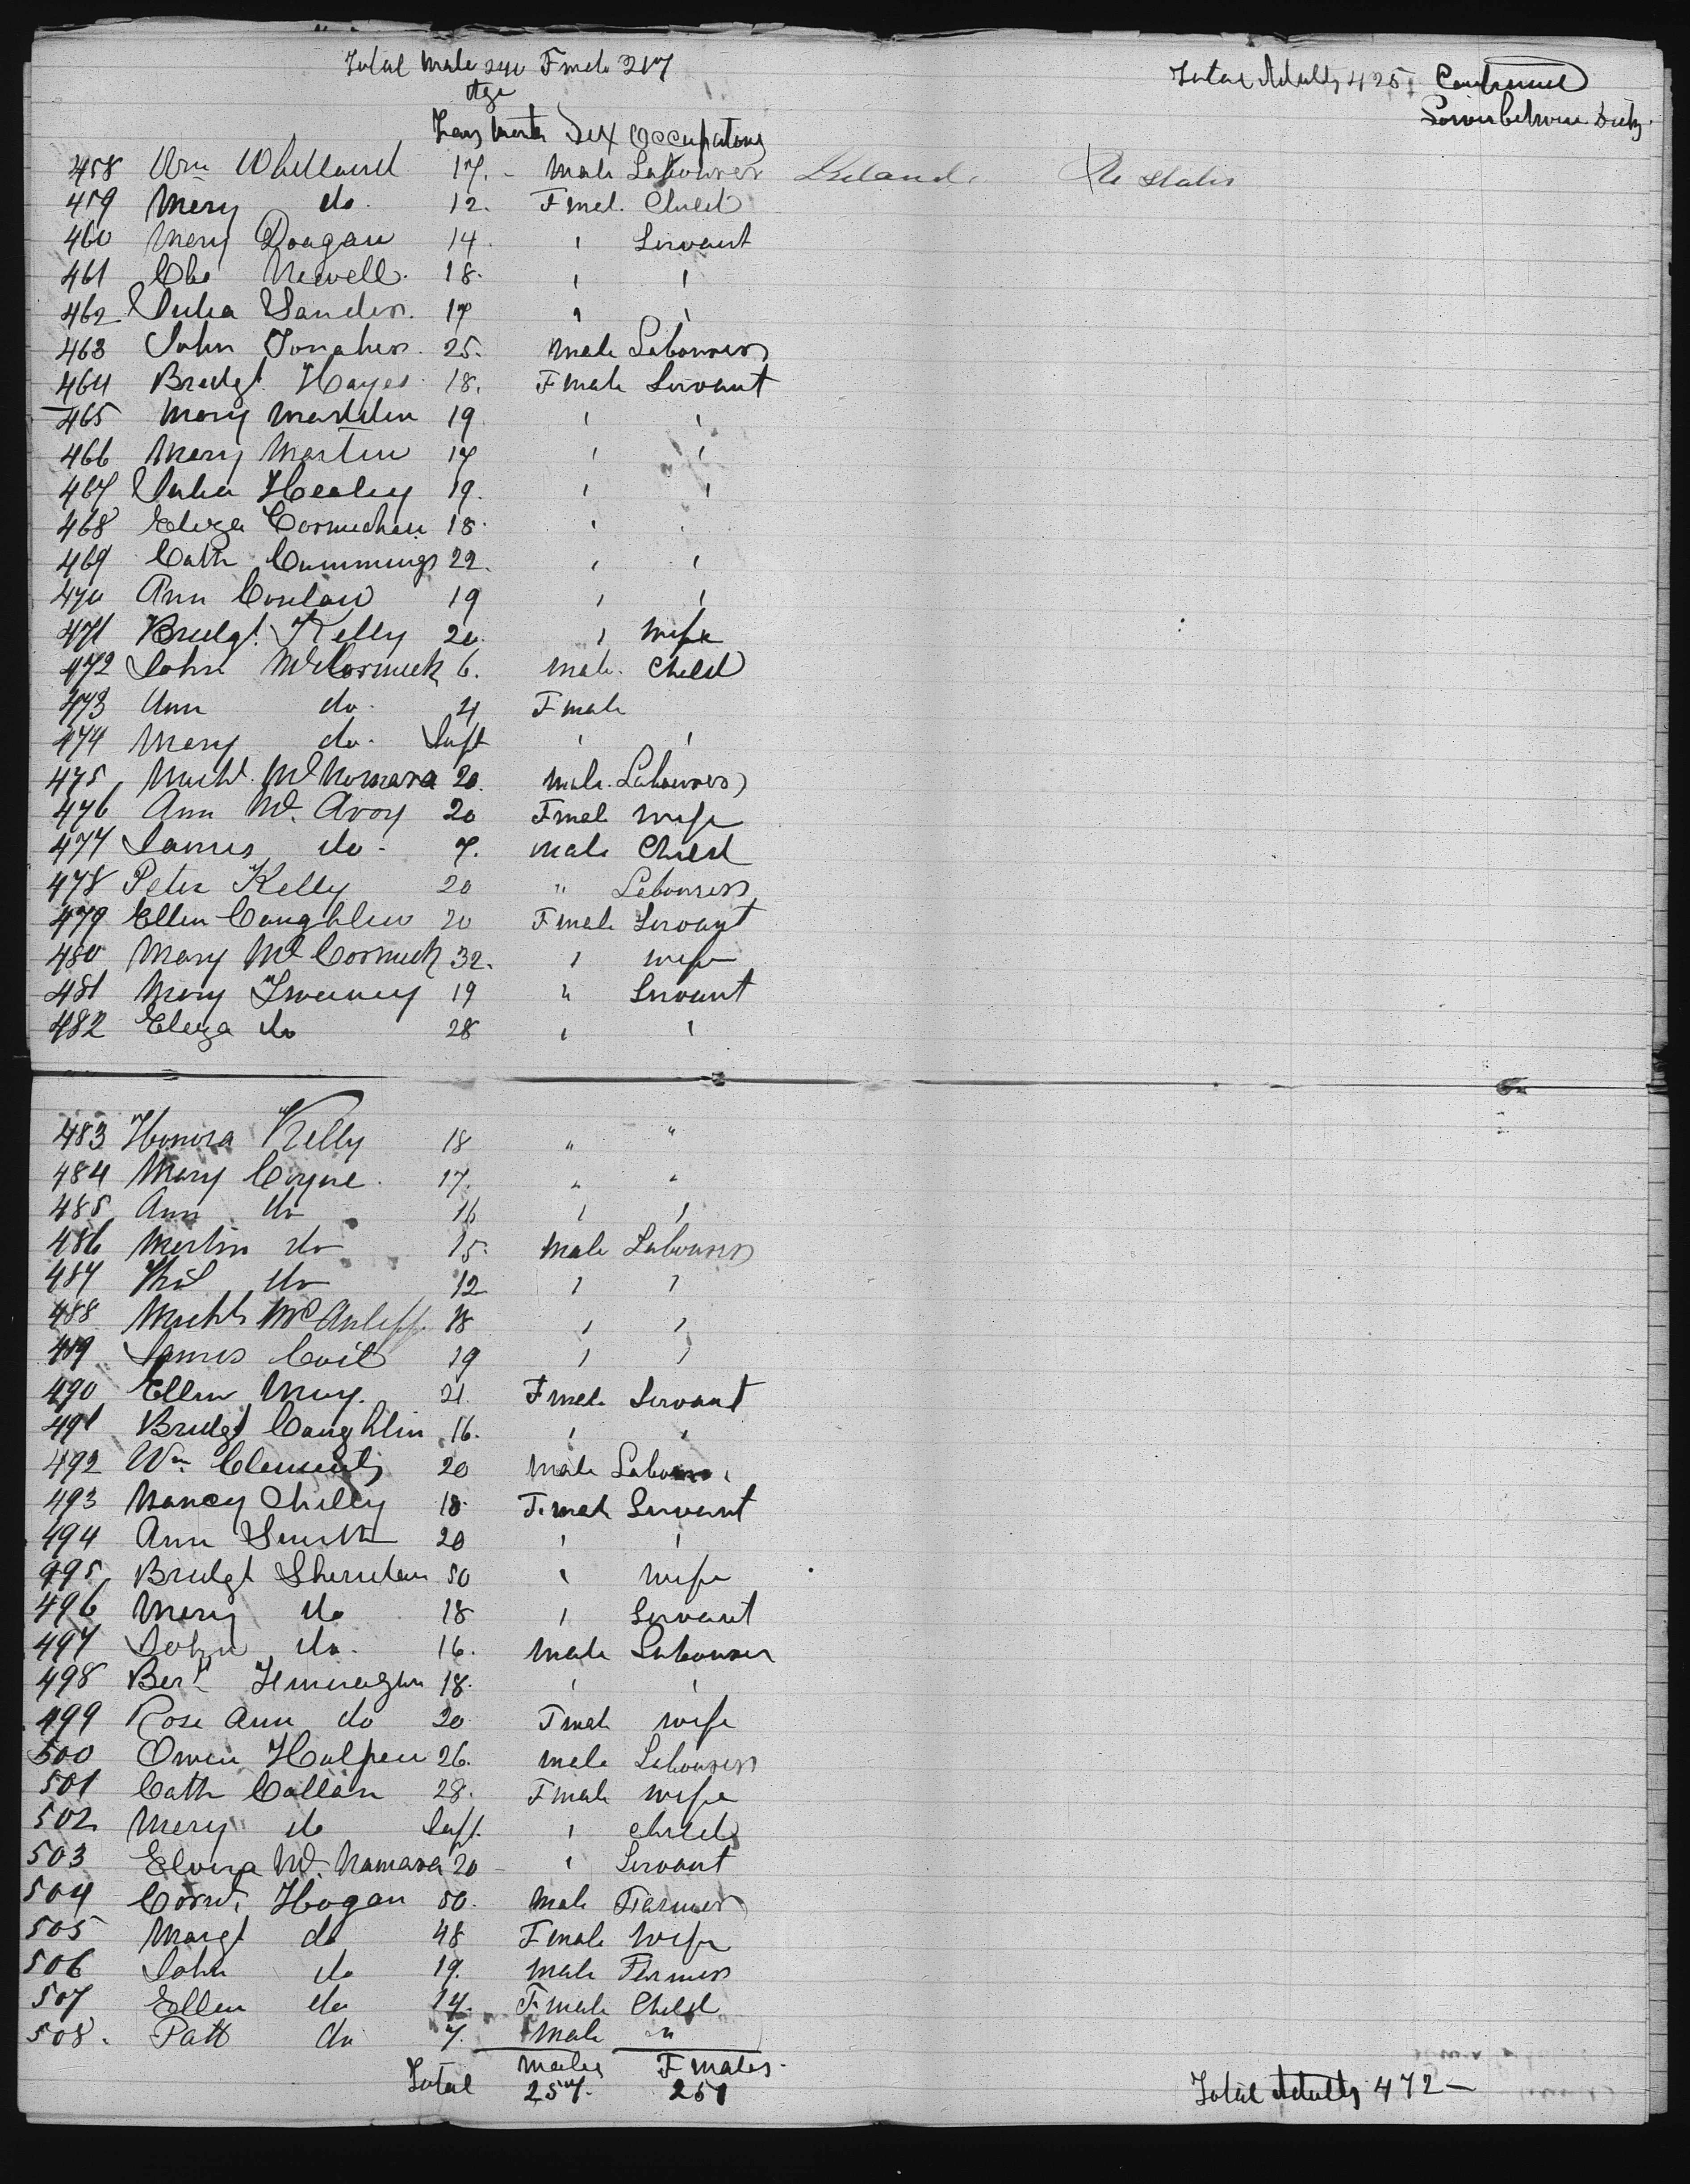 Total male 240 Fmele 217
Total Adults 425 Continued
Sowin between Decks
Age
Years Months Sex Occupations
458 Wm 17. - Male Labourer Ireland. U States
459 Mary do. 12. Fmel. Child
460 Mery Doagan 14. " Servant
461 Newell. 18. " "
462 Julia Sanders. 17 " "
463 John Donaher. 25. Male Labourer
464 Bredgt. Hayes 18. Fmale Servant
465 Mary Madden 19 " "
466 Mary Martin 17 " "
467 Julia Healey 19. " "
468 Eliza 18. "
469 Cath Cummings 22. " "
470 Ann Conlan 19 " "
471 Bridgt. Kelly 20. " Wife
472 John McCormick 6. Male. Child
473 Ann do. 4 Fmale
474 Mary do. Inft " "
475 Michl. McNomara 20. Male. Labourer
476 Ann Mc. Avoy 20 Fmel Wife
477 James do. 7. Male Child
478 Peter Kelly 20 " Labourer
479 Ellen Coughlin 20 Fmale Servant
480 Mary McCormick 32. " wife
481 Mary Sweeney 19 " Servant
482 Eliza do 28 " "
483 Honora Kelly 18 " "
484 Mary Coyne. 17. " "
485 Ann do 16 " "
486 Martin do 15. Male Labourer
487 do 12 " "
488 Michl McAuliff 18 " "
489 James Coil 19 " "
490 Ellen 21. Fmele Servant
491 Bridgt Coughlin 16. " "
492 Wm Clements 20 Male Labourer
493 Nancy Chilley 18. Fmale Servant
494 Ann Smith 20 " "
495 Bridgt Sheridan 50 " Wife
496 Mary do 18 " Servant
497 John do. 16. Male Labourer
498 18. " "
499 Rose Ann do 20 Fmale wife
500 Owen Halpen 26. male Labourer
501 Cath Callan 28. Fmale wife
502 Mery do Inft. " child
503 Mc. Namara 20 - " Servant
504 Hogan 50. Male Farmer
505 Margt do 48 Fmale Wife
506 John do 19. Male Farmer
507 Ellen do 14. Fmale Child
508. Patt do 7. Male "
Males Fmales.
Total 257. 251
Total Adults 472 -